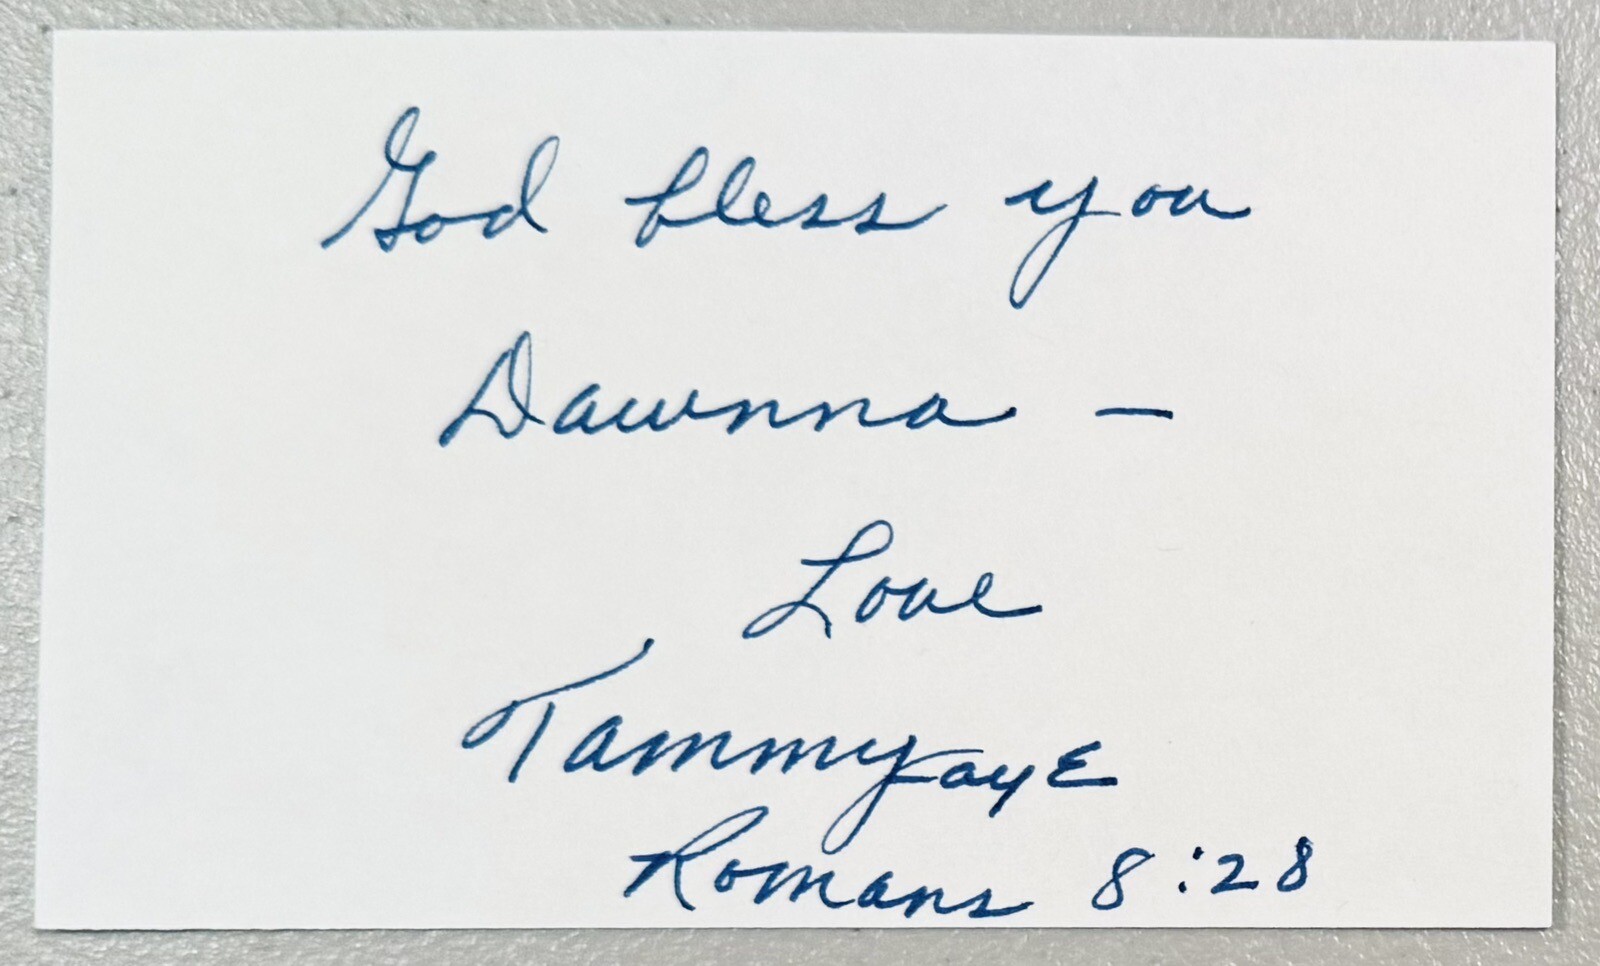 God bless you
Dawnna —
Love
Tammy Faye
Romans 8:28